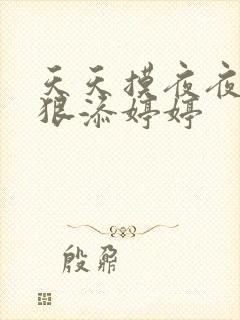 天天摸夜夜
狠添婷婷
殷鼐